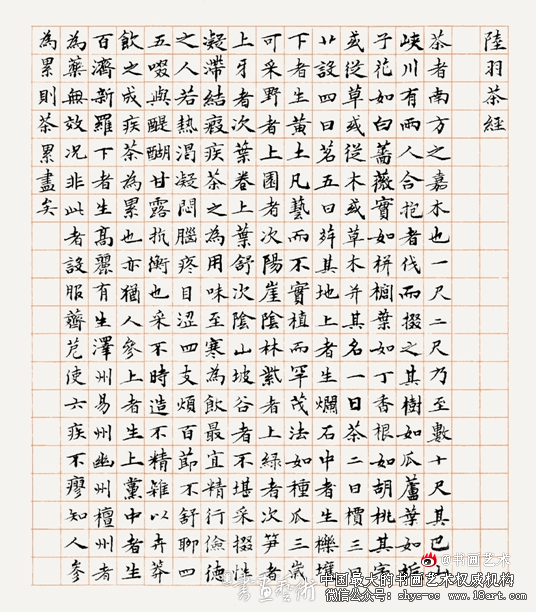 陸羽茶經
茶者南方之嘉木也一尺二尺乃至數十尺其巴山
峽川有兩人合抱者伐而掇之其樹如瓜蘆葉如梔
子花如白薔薇實如栟櫚葉如丁香根如胡桃其字
或從草或從木或草木并其名一曰茶二曰檟三曰
艹設四曰茗五曰荈其地上者生爛石中者生櫟壤
下者生黃土凡藝而不實植而罕茂法如種瓜三歲
可采野者上園者次陽崖陰林紫者上綠者次笋者
上牙者次葉卷上葉舒次陰山坡谷者不堪采掇性
凝滯結瘕疾茶之為用味至寒為飲最宜精行儉德
之人若熱渴凝悶腦疼目澀四支煩百節不舒聊四
五啜與醍醐甘露抗衡也采不時造不精雜以卉莽
飲之成疾茶為累也亦猶人參上者生上黨中者生
百濟新羅下者生高麗有生澤州易州幽州檀州者
為藥無效況非此者設服薺苨使六疾不瘳知人參
為累則茶累盡矣
@书画艺术
書画藝術
中国最大的书画艺术权威机构
微信公众号: shys-cc www.18art.cn